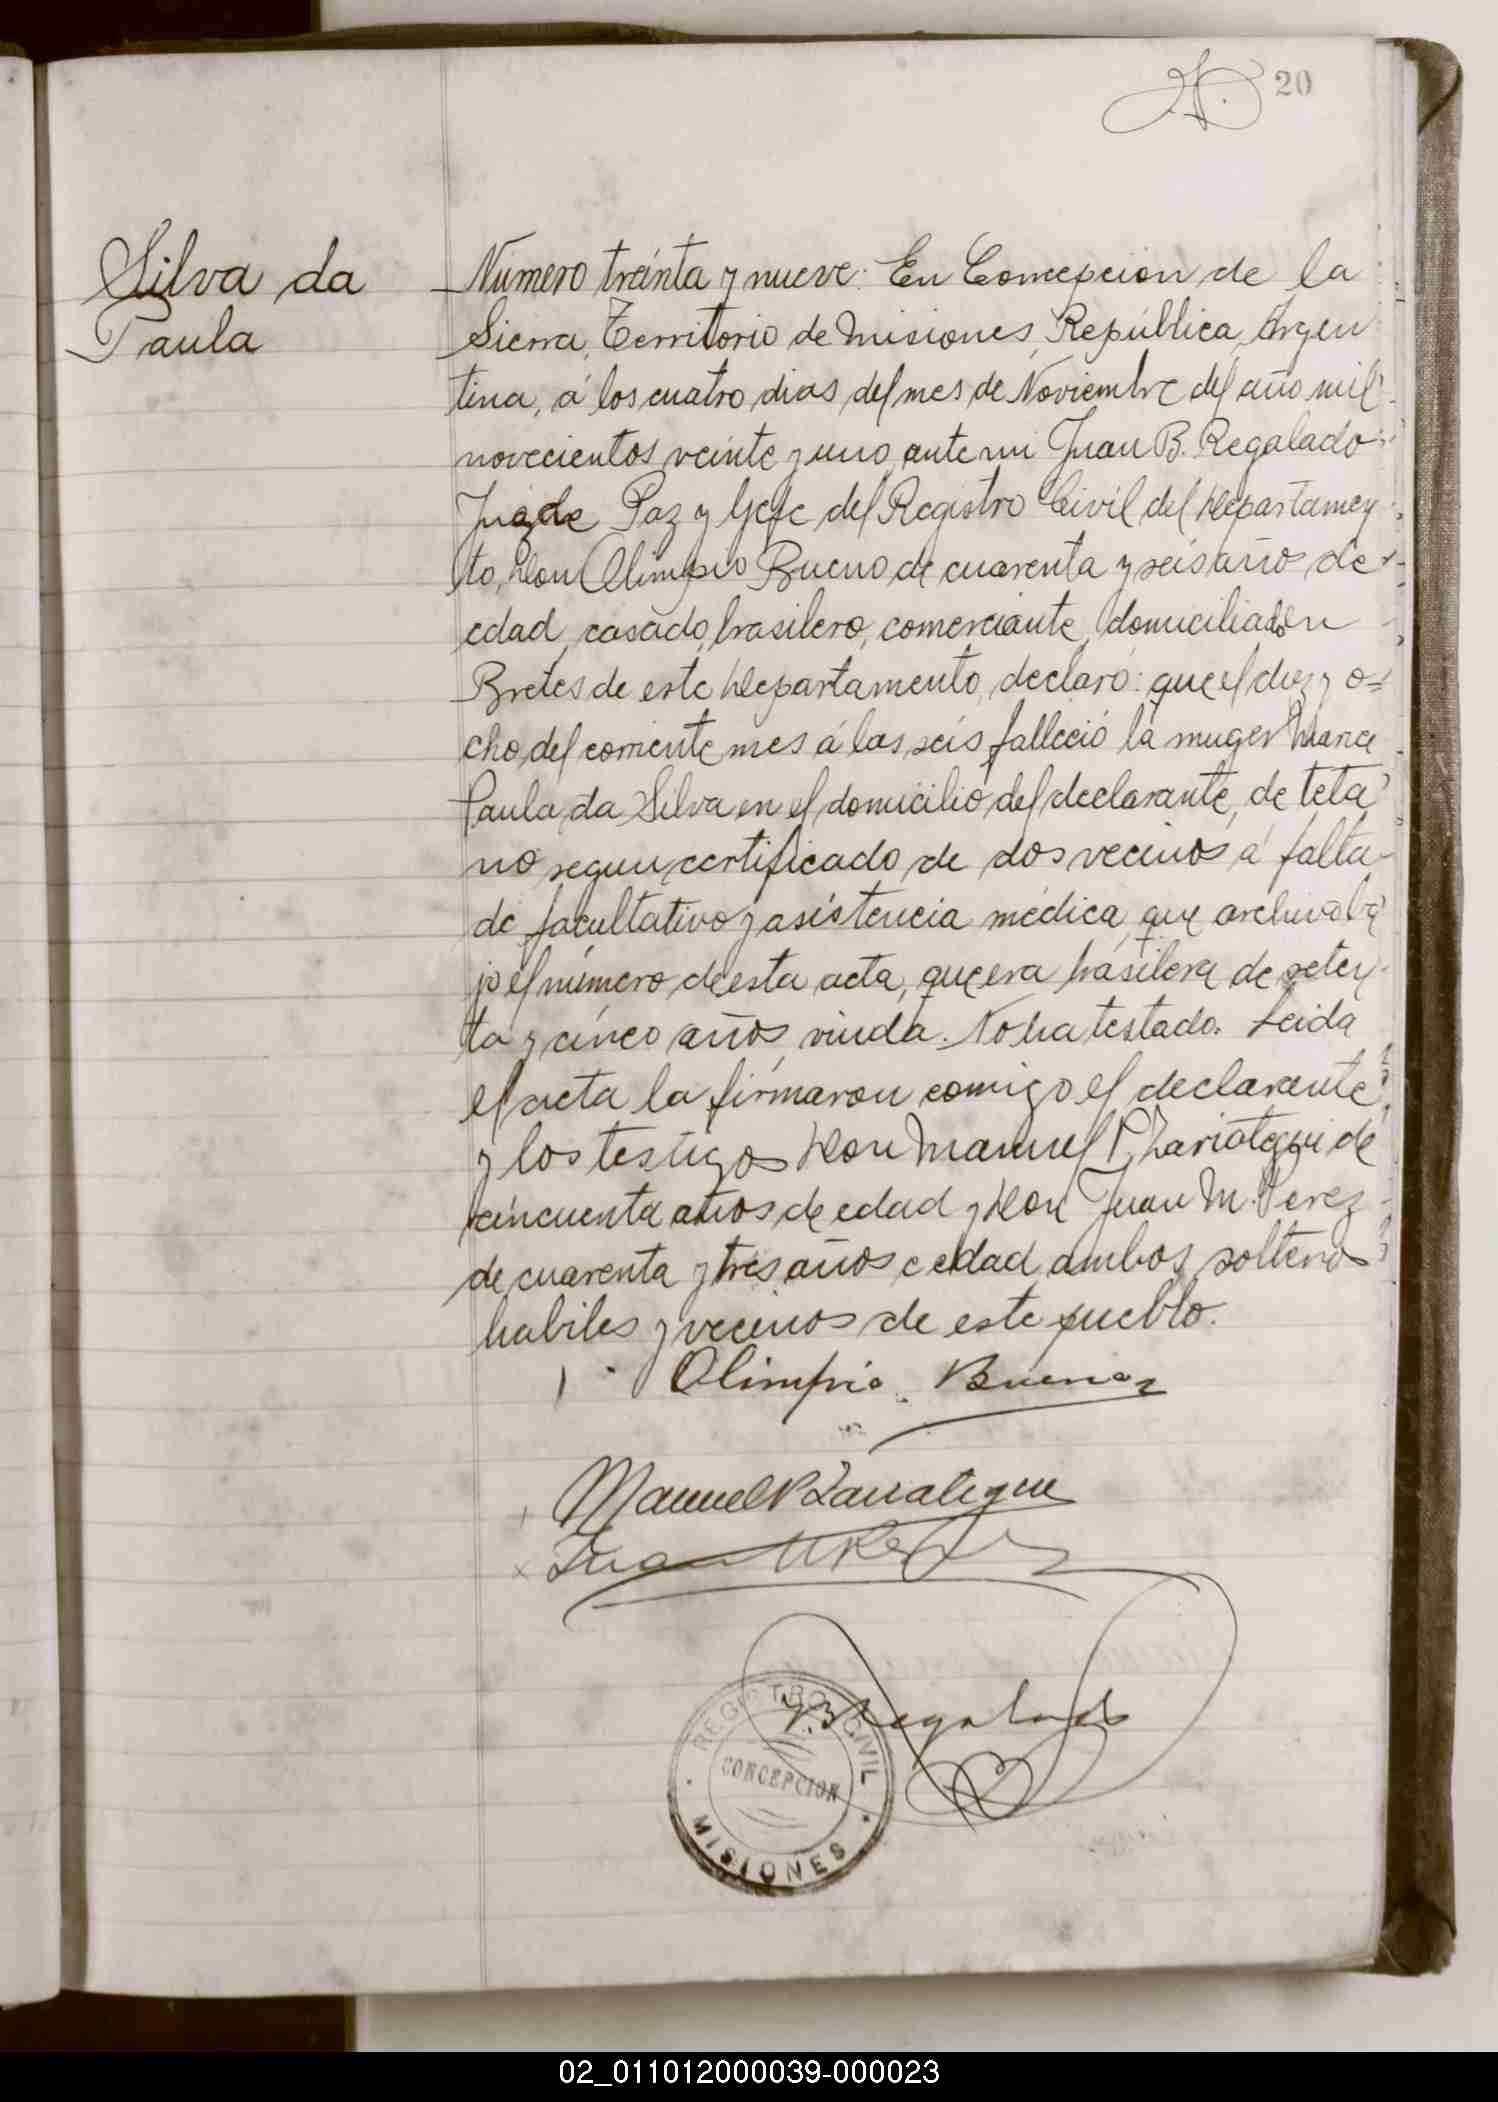 20
Silva da
Paula
Número treinta y nueve: En Concepcion de la
Sierra, Territorio de Misiones, República Argen
tina, á los cuatro dias del mes de Noviembre del año mil
novecientos veinte y uno, ante mi Juan B. Regalado
Juez de Paz y Gefe del Registro Civil del Departamen
to, Don Olimpio Bueno de cuarenta y seis año de
edad, casado, brasilero, comerciante, domiciliado en
Bretes de este Departamento, declaró: que el diez y o=
cho del corriente mes á las seis falleció la muger Maria
Paula da Silva en el domicilio del declarante, de teta
no segun certificado de dos vecinos á falta
de facultativo y asistencia médica, que archivo ba
jo el número de esta acta, que era brasilera de seten
ta y cinco años, viuda. No ha testado. Leida
el acta la firmaron comigo el declarante
y los testigos Don Manuel P. Zariategui de
cincuenta años de edad y Don Juan M. Perez
de cuarenta y tres años e edad, ambos solteros
habiles y vecinos de este pueblo.
Olimpio Bueno
Manuel P Zariategui
Juan M Perez
J. B Regalado
REGISTRO CIVIL
CONCEPCION
MISIONES
02_011012000039-000023